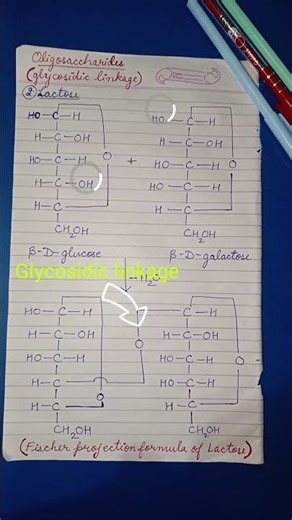 Oligosaccharides
(glycosidic linkage)
② Lactose
HO—C—H HO—C—H
H—C—OH H—C—OH
HO—C—H O + HO—C—H O
H—C—OH HO—C—H
H—C H—C
CH₂OH CH₂OH
β-D-glucose β-D-galactose
Glycosidic linkage
−H₂O
HO—C—H C—H
H—C—OH O H—C—OH
HO—C—H HO—C—H O
H—C HO—C—H
H—C O H—C
CH₂OH CH₂OH
(Fischer projection formula of Lactose)